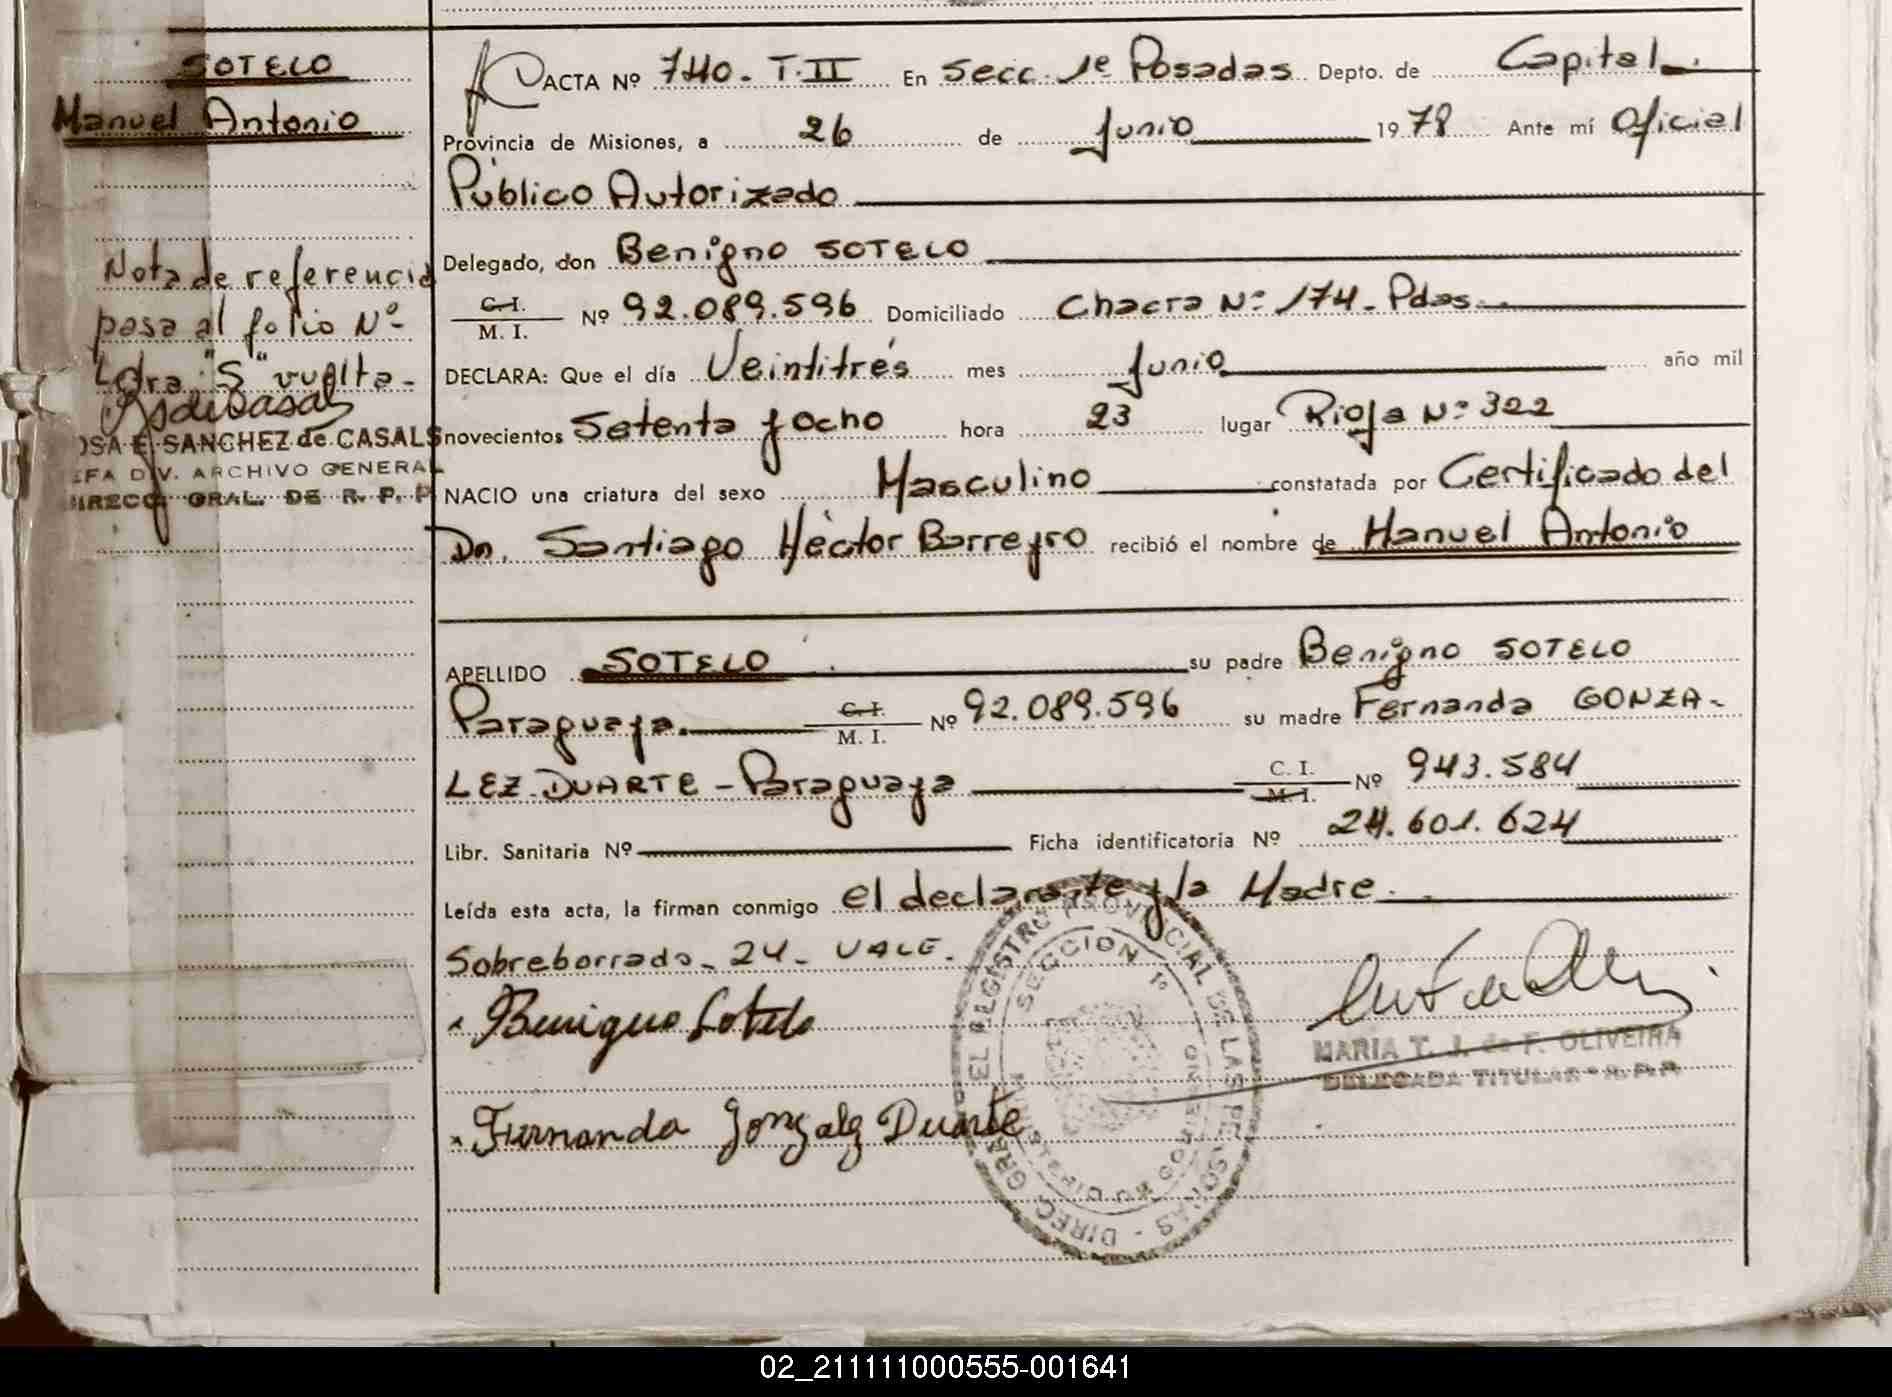 SOTELO
Manuel Antonio
Nota de referencia
pasa al folio Nº
Letra "S" vuelta -
OSA E. SANCHEZ de CASALS
EFA DIV. ARCHIVO GENERAL
DIRECC. GRAL. DE R. P. P
ACTA Nº 740. T. II En Secc. 1º Posadas Depto. de Capital
Provincia de Misiones, a 26 de Junio 1978 Ante mí Oficial
Público Autorizado
Delegado, don Benigno SOTELO
C. I.
M. I. Nº 92.089.596 Domiciliado Chacra Nº 174 - Pdas.
DECLARA: Que el día Veintitrés mes Junio año mil
novecientos Setenta y ocho hora 23 lugar Rioja Nº 322
NACIO una criatura del sexo Masculino constatada por Certificado del
Dr. Santiago Héctor Barreyro recibió el nombre de Manuel Antonio
APELLIDO SOTELO su padre Benigno SOTELO
Paraguaya. C. I. M. I. Nº 92.089.596 su madre Fernanda GONZA-
LEZ DUARTE - Paraguaya C. I. M. I. Nº 943.584
Libr. Sanitaria Nº Ficha identificatoria Nº 24.601.624
Leída esta acta, la firman conmigo el declarante y la Madre.
Sobreborrado - 24 - VALE.
Benigno Sotelo
Fernanda Gonzalez Duarte
MARIA T. J. de F. OLIVEIRA
DELEGADA TITULAR - R.P.P
SECCION 1º
02_211111000555-001641